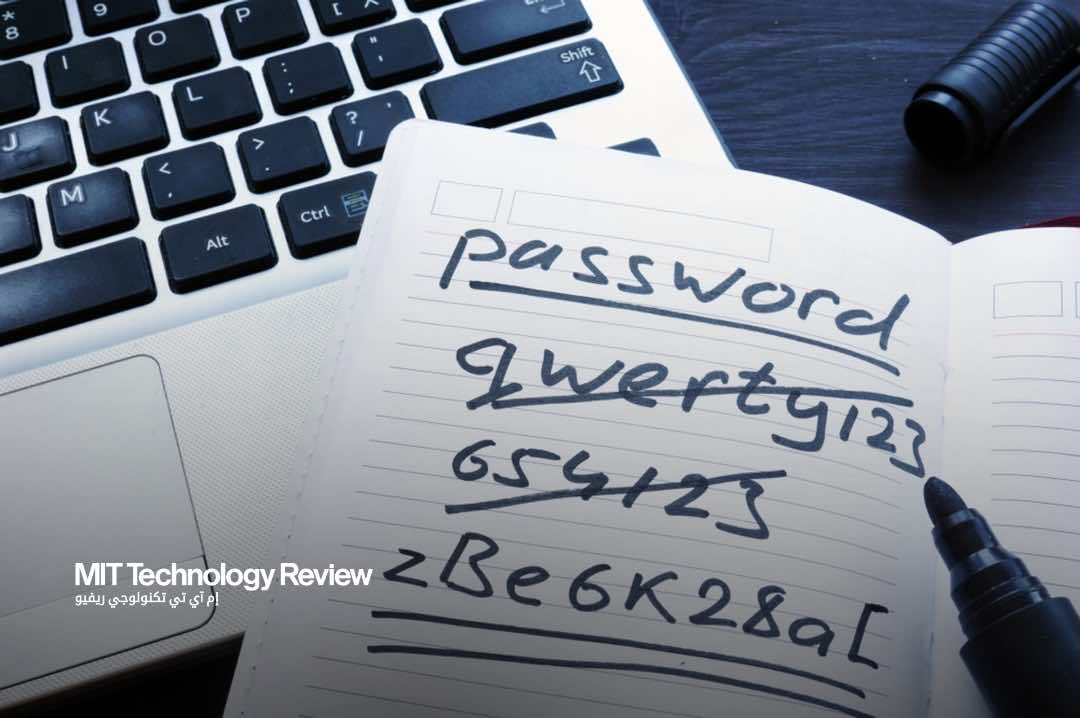 * 8
9
I
O
P
[ X
Enter
" '
: ;
L
K
J
Shift
? /
> .
< ,
M
Ctrl
Alt
password
qwerty123
654123
zBe6K28a[
MIT Technology Review
إم آي تي تكنولوجي ريفيو